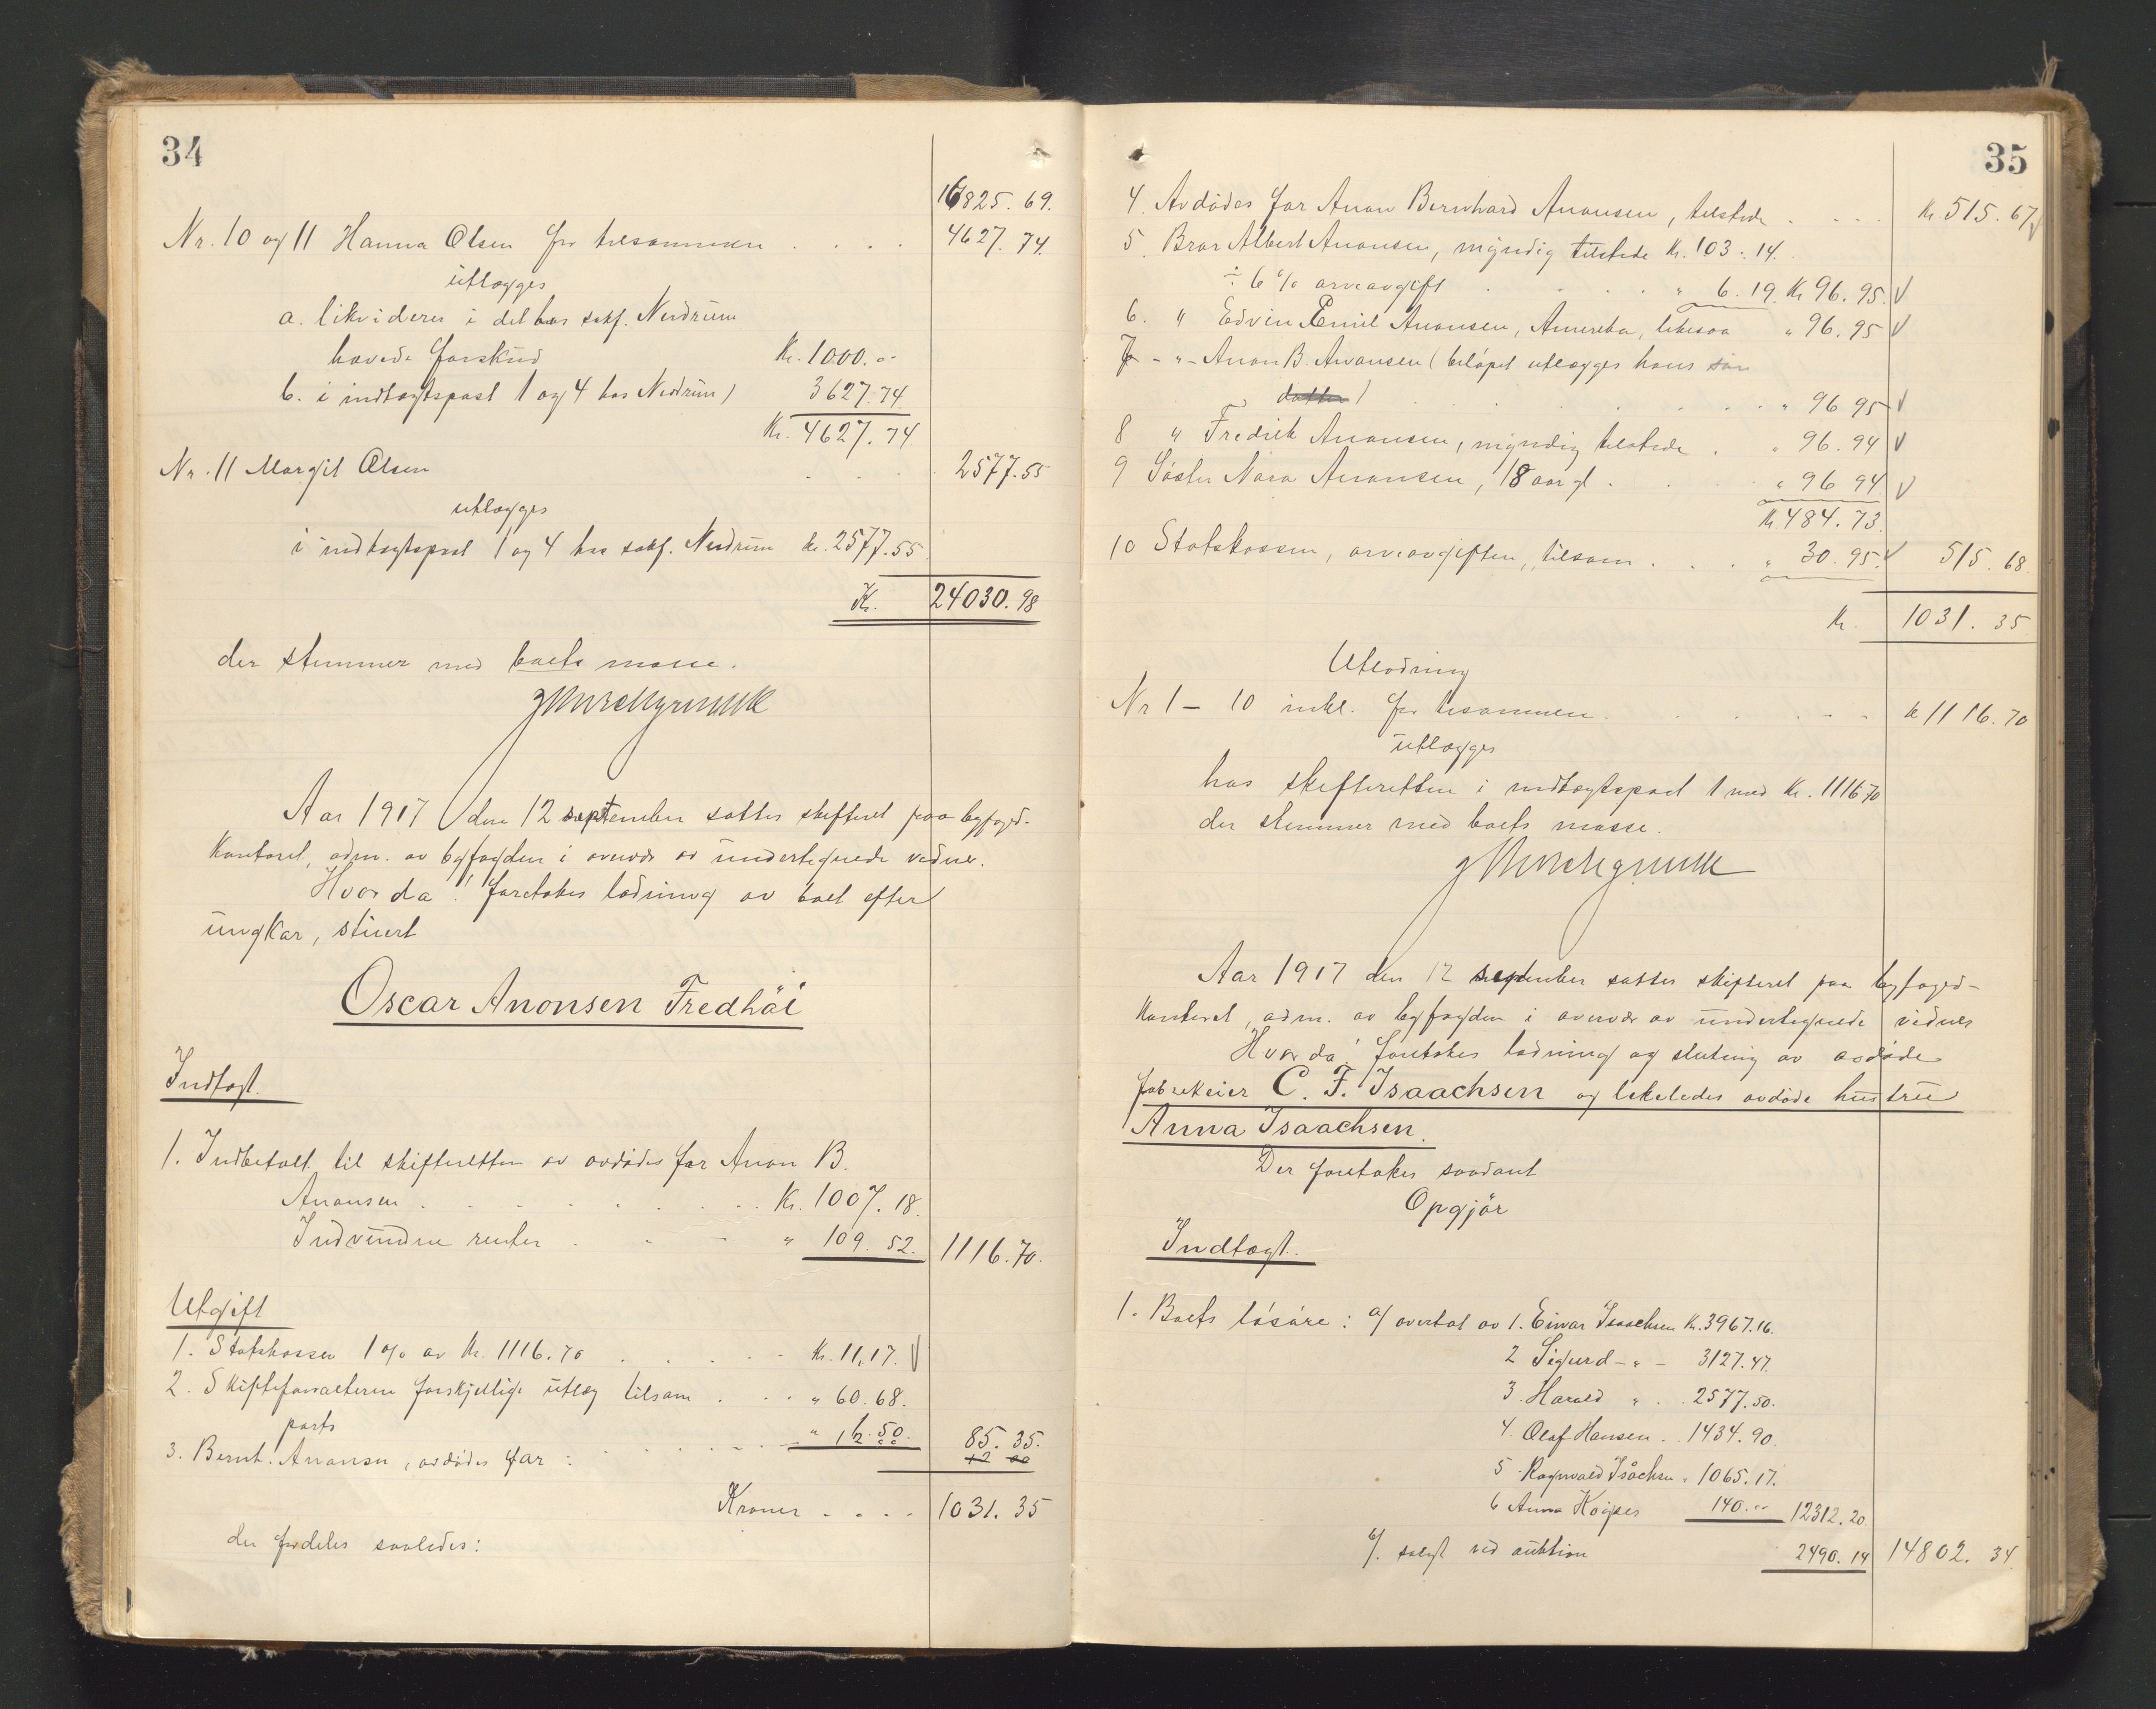 34
16825. 69.
Nr. 10 og 11 Hanna Olsen for tilsammen . . . . 4627. 74.
utlægges
a. likviderer i det hos sakf. Nerdrum
hævede forskud Kr. 1000.00
b. i indtægtspost 1 og 4 hos Nerdrum) 3627.74
Kr. 4627.74
Nr. 11 Margit Olsen . . . 2577.55
utlægges
i indtægtspost 1 og 4 hos sakf. Nerdrum kr. 2577.55
Kr. 24030.98
der stemmer med boets masse.
Aar 1917 den 12 september sattes skifteret paa byfoged-
kontoret, adm. av byfogden i overvær av undertegnede vidner.
Hvorda! foretokes lodning av boet efter
ungkar, stuert
Oscar Anonsen Fredhöi
Indtægt.
1. Indbetalt til skifteretten av avdödes far Anon B.
Anonsen . . . . . . . . Kr. 1007. 18.
Indvundne renter . . . „ 109. 52. 1116.70.
Utgift
1. Statskassen 1 % av Kr. 1116.70 . . . . . Kr. 11,17. V
2. Skifteforvalteren forskjellige utlæg tilsam . . . „ 60.68.
porto
3. Bernh. Anonsen, avdödes far : . . . . . „ 12.50. 85. 35.
12 00
Kroner . . . . 1031. 35
der fordeles saaledes:
35
4. Avdödes far Anon Bernhard Anonsen, tilstede . . . . Kr. 515. 67 V
5. Bror Albert Anonsen, myndig tilstede Kr. 103. 14.
÷ 6 % arveavgift . . . . „ 6. 19. Kr 96. 95. V
6. „ Edvin Emil Anonsen, Amerika, likesaa „ 96. 95 V
7 - „ - Anon B. Anonsen (beløpet utlægges hans sön
datter) . . . . . . . . „ 96 95 V
8 „ Fredrik Anonsen, myndig tilstede . „ 96. 94 V
9 Söster Nora Anonsen, 18 aar gl . . . . „ 96 94 V
Kr. 484. 73.
10 Statskassen, arveavgiften, tilsam . . . „ 30. 95. V 515. 68.
Kr. 1031. 35
Utlodning
Nr 1 - 10 inkl. for tilsammen . . . . . . kr 1116. 70
utlægges
hos skifteretten i indtægtspost 1 med Kr. 1116 70
der stemmer med boets masse.
Aar 1917 den 12 september sattes skifteret paa byfoged-
kontoret, adm. av byfogden i overvær av undertegnede vidner
Hvor da! foretokes lodning og slutning av avdöde
fabrikeier C. F. Isaachsen og likeledes avdöde hustru
Anna Isaachsen.
Der foretokes saadant
Opgjör
Indtægt.
1. Boets lösöre: a/ overtat av 1. Einar Isaachsen Kr. 3967.16.
2 Sigurd - „ - 3127.47.
3. Harald „ . . 2577.50.
4. Olaf Hansen . . 1434.90.
5 Ragnvald Isåchsen „ 1065.17.
6 Anna 140.00 12312.20
b/. solgt ved auktion 2490. 14 14802. 34.